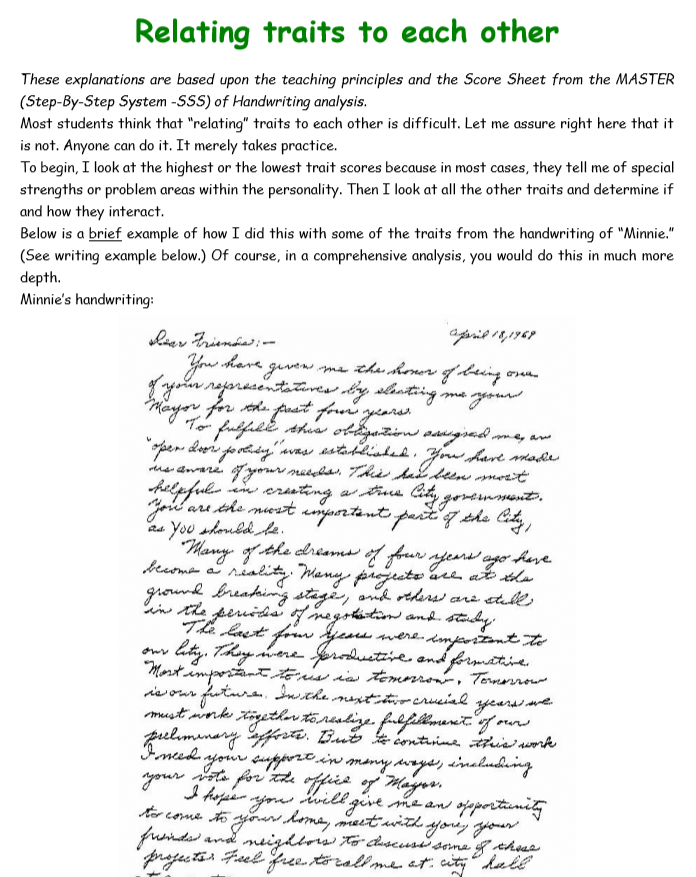 Relating traits to each other
These explanations are based upon the teaching principles and the Score Sheet from the MASTER
(Step-By-Step System -SSS) of Handwriting analysis.
Most students think that “relating” traits to each other is difficult. Let me assure right here that it
is not. Anyone can do it. It merely takes practice.
To begin, I look at the highest or the lowest trait scores because in most cases, they tell me of special
strengths or problem areas within the personality. Then I look at all the other traits and determine if
and how they interact.
Below is a brief example of how I did this with some of the traits from the handwriting of “Minnie.”
(See writing example below.) Of course, in a comprehensive analysis, you would do this in much more
depth.
Minnie’s handwriting:
April 18, 1969
Dear Friends:-
You have given me the honor of being one
of your representatives by electing me your
Mayor for the past four years.
To fulfill this obligation assigned me, an
"open door policy" was established. You have made
us aware of your needs. This has been most
helpful in creating a true City government.
You are the most important part of the City,
as YOU should be.
Many of the dreams of four years ago have
become a reality. Many projects are at the
ground breaking stage, and others are still
in the periods of negotation and study.
The last four years were important to
our City. They were productive and formative.
Most important to us is tomorrow. Tomorrow
is our future. In the next two crucial years we
must work together to realize fulfillment of our
preliminary efforts. But to continue this work
I need your support in many ways, including
your vote for the office of Mayor.
I hope you will give me an opportunity
to come to your home, meet with you, your
friends and neighbors to discuss some of these
projects. Feel free to call me at city hall